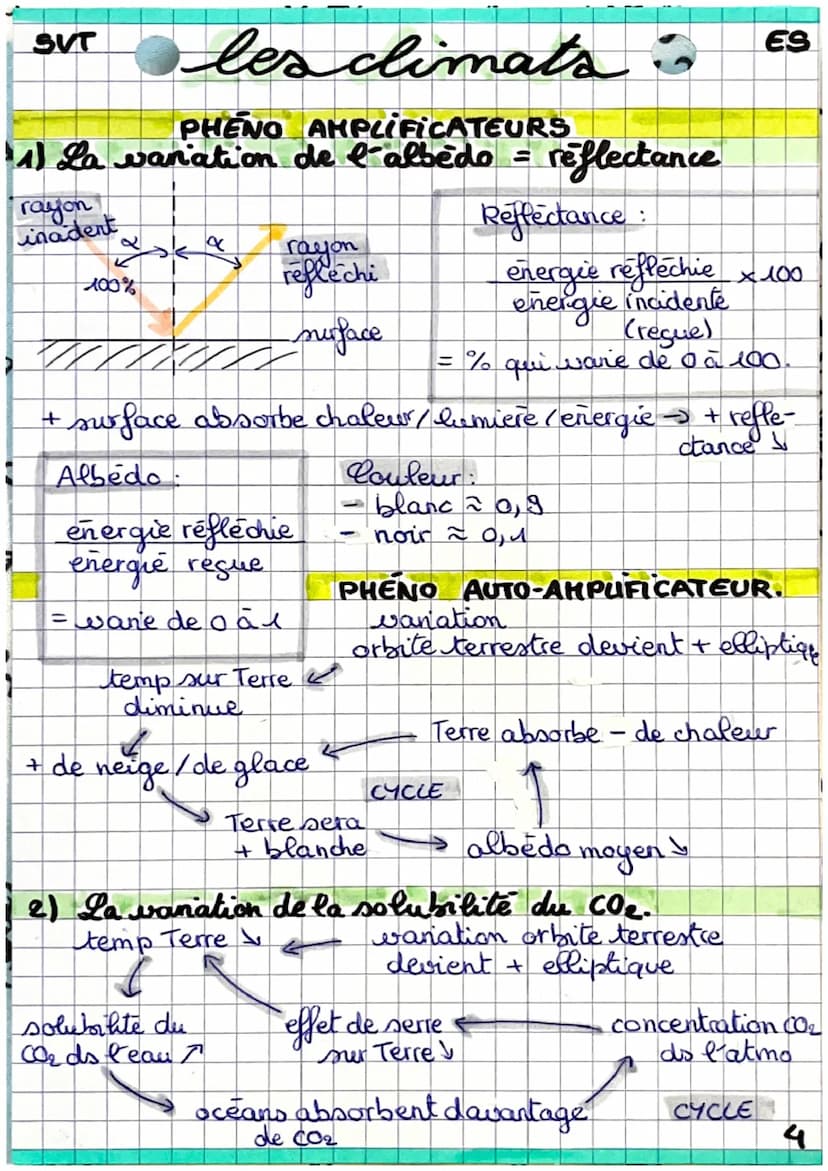 SVT
ES
les climats
PHÉNO AMPLIFICATEURS
1) La variation de l'albédo = réflectance
rayon
incident
α
α
100%
rayon
réfléchi
surface
Réflectance :
énergie réfléchie x 100
énergie incidente
(reçue)
= % qui varie de 0 à 100.
+ surface absorbe chaleur/lumière/énergie → + réflec-
tance ↘
Albédo :
énergie réfléchie
énergie reçue
= varie de 0 à 1
Couleur :
- blanc ≈ 0,9
- noir ≈ 0,1
PHÉNO AUTO-AMPLIFICATEUR.
variation
orbite terrestre devient + elliptique
temp sur Terre
diminue
Terre absorbe - de chaleur
+ de neige/de glace
CYCLE
Terre sera
+ blanche
albédo moyen ↘
2) La variation de la solubilité du CO2.
temp Terre ↘
variation orbite terrestre
devient + elliptique
solubilité du
CO2 ds l'eau ↗
effet de serre
sur Terre ↘
concentration CO2
ds l'atmo
océans absorbent davantage
de CO2
CYCLE
4